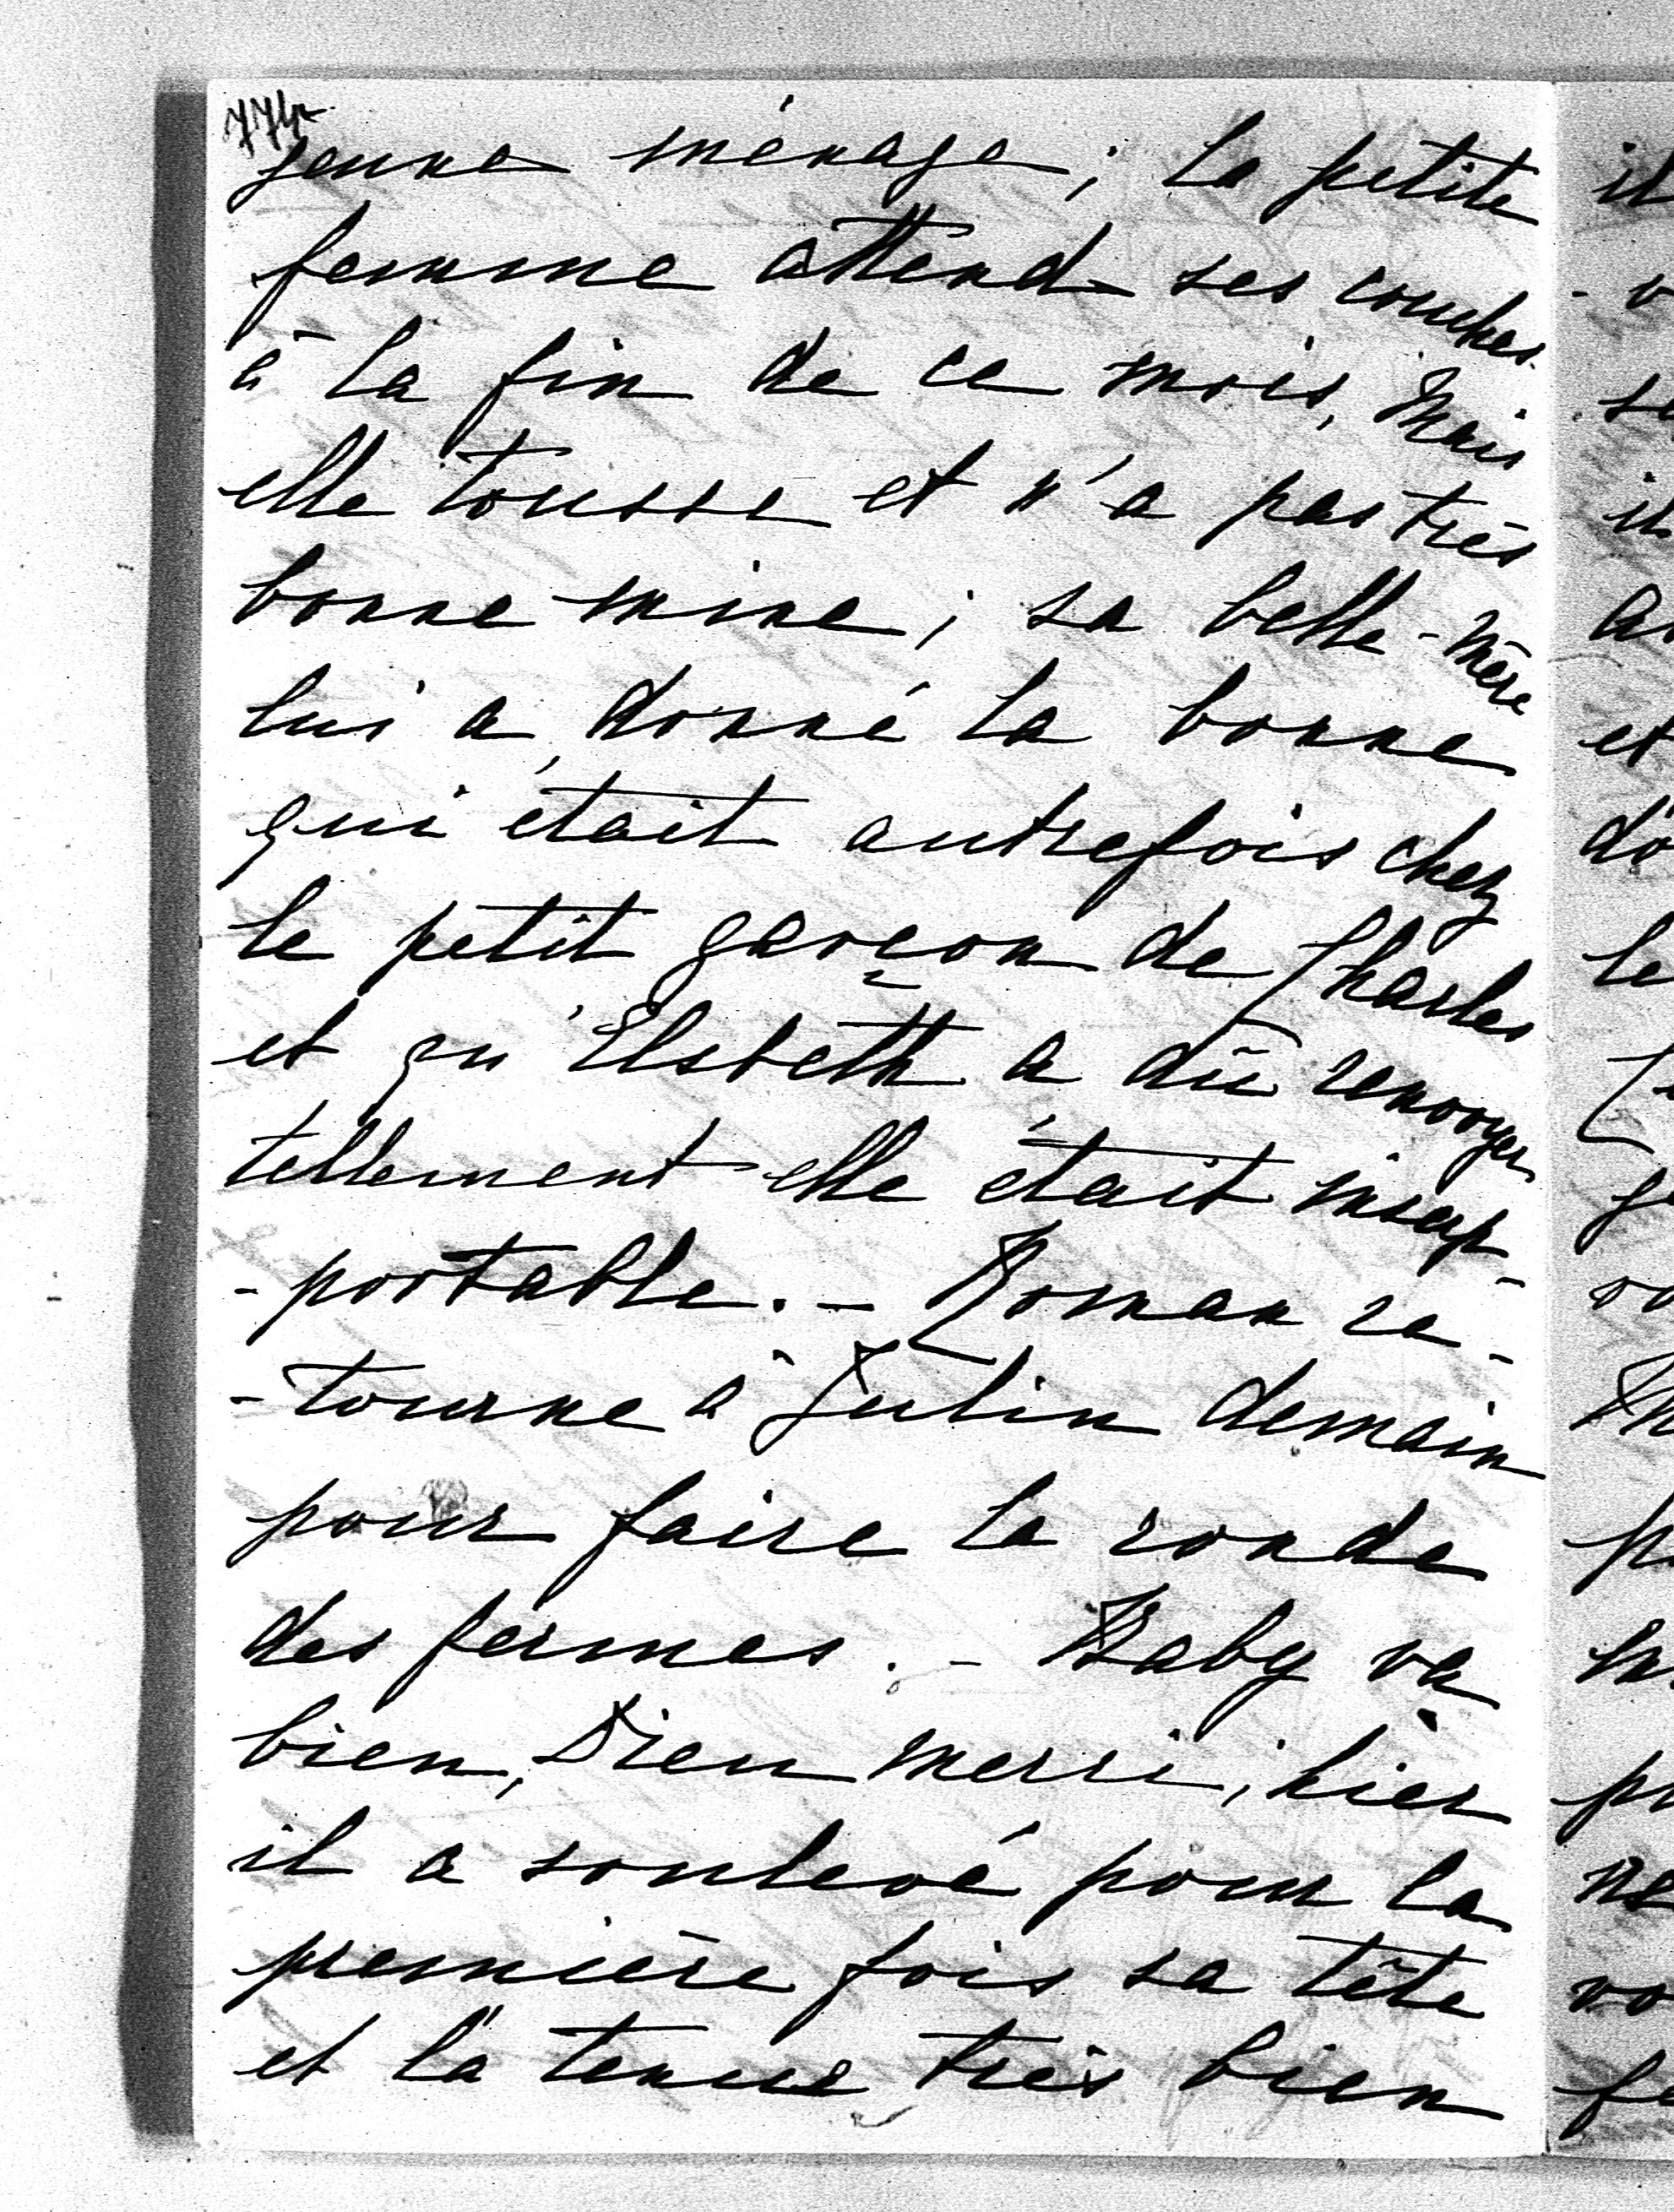 774
jeune ménage; la petite
femme attend ses couches
à la fin de ce mois, mais
elle tousse et n'a pas très
bonne mine; sa belle-mère
lui a donné la bonne
qui était autrefois chez
le petit garçon de Charles
et qu'Elsbeth a dû renvoyer
tellement elle était insup-
-portable. - Roman re-
-tourne à Julin demain
pour faire la ronde
des fermes. - Baby va
bien, Dieu merci; hier
il a soulevé pour la
première fois sa tête
et l'a tenue très bien